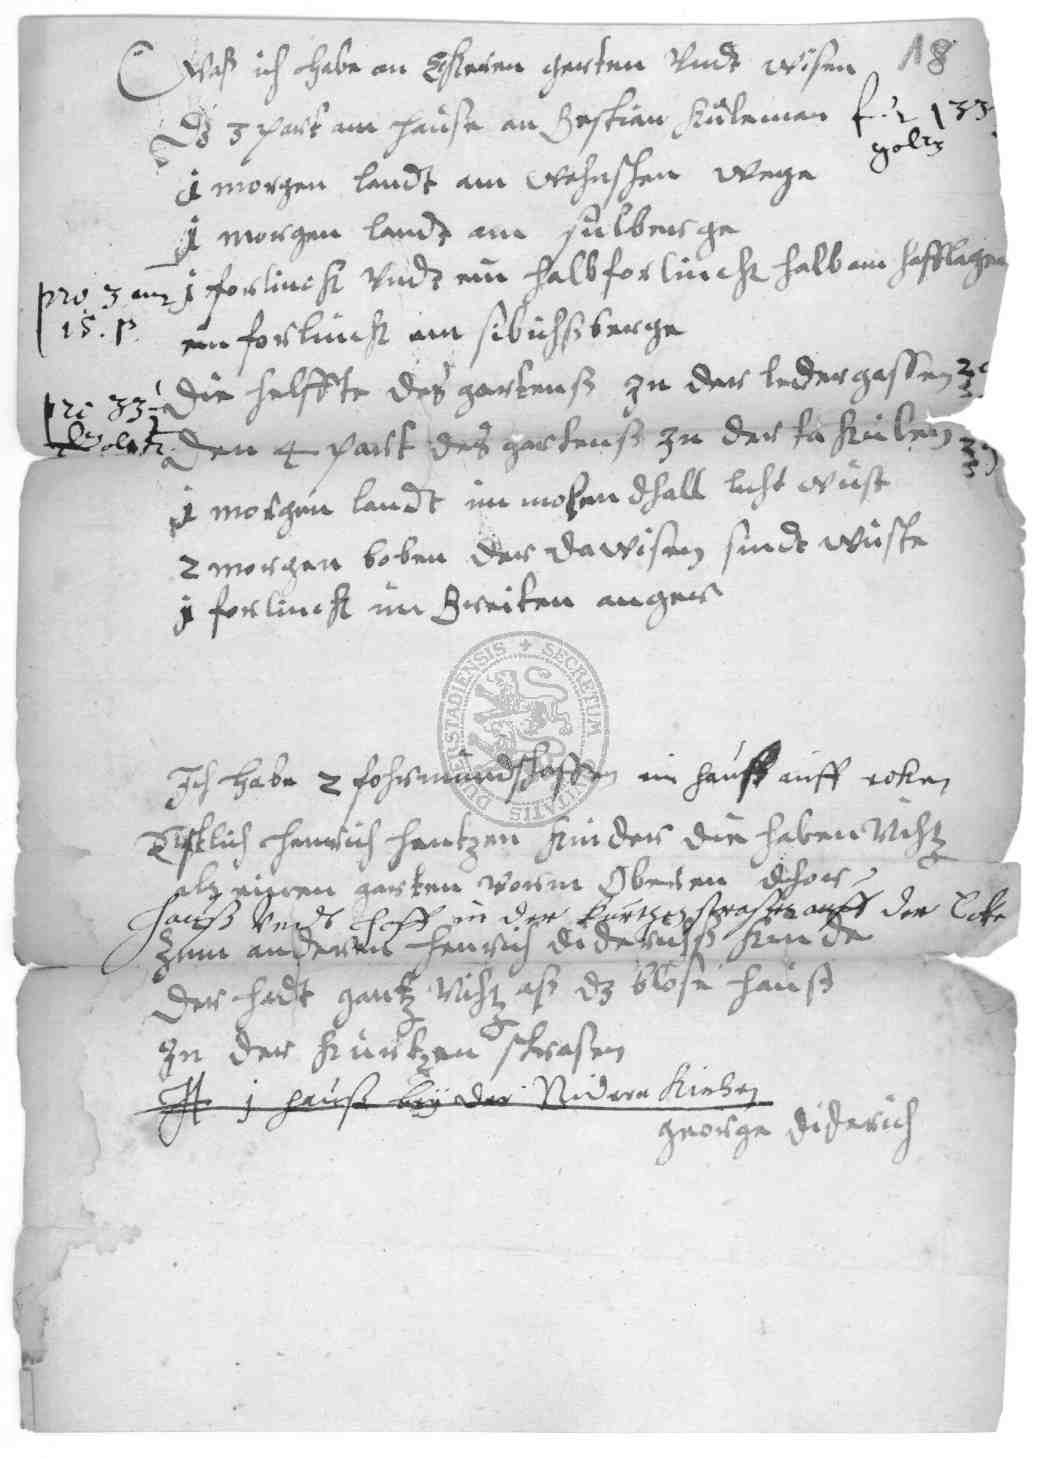 18
Waß ich habe an Eckeren garten Vndt wisen
Dz 3 part am hause an Bestian Kuleman f. 2 133
goltz
1 morgen landt am Wehnschen wege
1 morgen landt am sulberge
pro 3 1 forlinck Vndt ein halb forlinck halb am hafflagen
15. p. ein forlinck am sibichsberge
Die helffte des gartenß zu der ledergassen
pro 33 Den 4 part des gartenß zu der ta kulen
1 morgen landt im dhall licht wust
2 morgen boben der dawisen sindt wuste
1 forlinck im Breiten anger
DUDERSTADIENSIS SECRETUM CIVITATIS
Ich habe 2 fohrmundschafften im hauß auff
Erstlich henrich hentzen kinder die haben Nichtz
alz einen garten vorm Oberen dhor
hauß Vndt hoff in der kurtzen strassen auff der Ecke
Zum anderen henrich diderichß kinde
der hadt gantz Nichtz aß dz blose hauß
zu der kurtzen strasen
1 hauß bey der Nidern Kirchen
george diderich